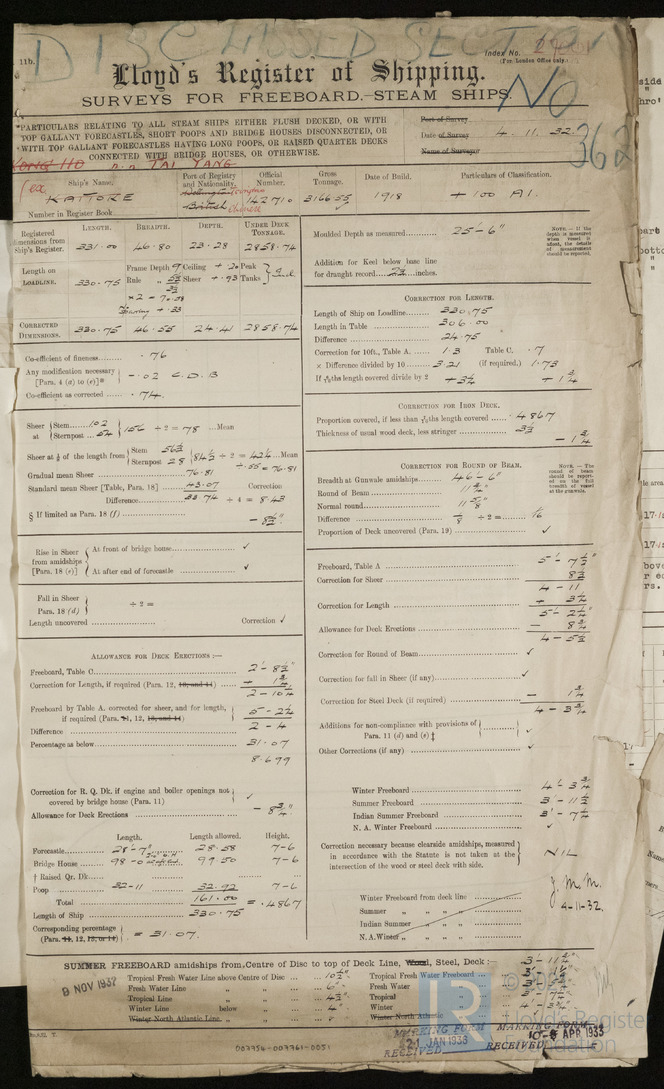 DISCLASSED SECTION
11b.
Index No.
(For London Office only.)
Lloyd's Register of Shipping.
SURVEYS FOR FREEBOARD.—STEAM SHIPS.
No
362
PARTICULARS RELATING TO ALL STEAM SHIPS EITHER FLUSH DECKED, OR WITH
TOP GALLANT FORECASTLES, SHORT POOPS AND BRIDGE HOUSES DISCONNECTED, OR
WITH TOP GALLANT FORECASTLES HAVING LONG POOPS, OR RAISED QUARTER DECKS
CONNECTED WITH BRIDGE HOUSES, OR OTHERWISE.
Port of Survey
Date of Survey 4.11.32
Name of Surveyor
TAI YANG
Ship's Name.
Port of Registry and Nationality.
Official Number.
Gross Tonnage.
Date of Build.
Particulars of Classification.
(ex KAITOKE
British
142710
1918
+ 100 A1.
Number in Register Book
Registered dimensions from Ship's Register.
LENGTH. BREADTH. DEPTH. UNDER DECK TONNAGE.
331.00 46.80 23.28 2858.74
Length on LOADLINE. 330.75
Frame Depth 9 Ceiling + .20 Peak
Rule Sheer + .93 Tanks
CORRECTED DIMENSIONS. 330.75 46.55 24.41 2858.74
Co-efficient of fineness .76
Any modification necessary
[Para. 4 (a) to (e)]* - .02 C.D.B
Co-efficient as corrected .74
Sheer at { Stem 102
Sternpost 54 } 156 ÷ 2 = 78 ...Mean
Sheer at 1/8 of the length from { Stem 56½
Sternpost 28 } 84½ ÷ 2 = 42¼ ...Mean
Gradual mean Sheer 76.81
+ .55 = 76.81
Standard mean Sheer [Table, Para. 18] 43.07 Correction
Difference 33.74 ÷ 4 = 8.43
§ If limited as Para. 18 (f) - 8½"
Rise in Sheer from amidships [Para. 18 (e)]
At front of bridge house ✓
At after end of forecastle ✓
Fall in Sheer
Para. 18 (d) ÷ 2 =
Length uncovered Correction ✓
ALLOWANCE FOR DECK ERECTIONS :—
Freeboard, Table C 2' - 8½"
Correction for Length, if required (Para. 12, 13, and 14) + 1¾
2 - 10¼
Freeboard by Table A. corrected for sheer, and for length,
if required (Para. 11, 12, 13, and 14) 5 - 2¼
Difference 2 - 4
Percentage as below 31.07
8.699
Correction for R. Q. Dk. if engine and boiler openings not
covered by bridge house (Para. 11) ✓
Allowance for Deck Erections - 8¾"
Length. Length allowed. Height.
Forecastle 28'-7" 28.58 7-6
Bridge House 98-0 99.50 7-6
† Raised Qr. Dk.
Poop 32-11 32.92 7-6
Total 161.00
Length of Ship 330.75 = .4867
Corresponding percentage
(Para. 11, 12, 13, or 14) = 31.07.
Moulded Depth as measured 25'-6"
NOTE.—If the depth is measured when vessel is afloat, the details of measurement should be reported.
Addition for Keel below base line
for draught record inches.
CORRECTION FOR LENGTH.
Length of Ship on Loadline 330.75
Length in Table 306.00
Difference 24.75
Correction for 10ft., Table A. 1.3 Table C. .7
× Difference divided by 10 3.21 (if required.) 1.73
If 6/10ths length covered divide by 2 + 3¼ + 1¾
CORRECTION FOR IRON DECK.
Proportion covered, if less than 7/10ths length covered .4867
Thickness of usual wood deck, less stringer 3½
- 1¾
CORRECTION FOR ROUND OF BEAM.
NOTE.—The round of beam should be reported on the full breadth of vessel at the gunwale.
Breadth at Gunwale amidships 46'-6"
Round of Beam 11¾"
Normal round 11⅝"
Difference ⅛ ÷ 2 = 1/16
Proportion of Deck uncovered (Para. 19) ✓
Freeboard, Table A 5' - 7½"
Correction for Sheer 8½
4 - 11
Correction for Length + 3¼
5' - 2¼"
Allowance for Deck Erections - 8¾
4 - 5½
Correction for Round of Beam ✓
Correction for fall in Sheer (if any) ✓
Correction for Steel Deck (if required) - 1¾
4 - 3¾
Additions for non-compliance with provisions of
Para. 11 (d) and (e) ‡ ✓
Other Corrections (if any) ✓
Winter Freeboard 4' - 3¾
Summer Freeboard 3' - 11½
Indian Summer Freeboard 3' - 7½
N. A. Winter Freeboard ✓
Correction necessary because clearside amidships, measured
in accordance with the Statute is not taken at the
intersection of the wood or steel deck with side. NIL
J.M.M.
4-11-32.
Winter Freeboard from deck line
Summer " " " "
Indian Summer " " "
N. A. Winter " " " "
SUMMER FREEBOARD amidships from Centre of Disc to top of Deck Line, Wood, Steel, Deck :— 3 - 11½"
Tropical Fresh Water Line above Centre of Disc 10½"
Tropical Fresh Water Freeboard
Fresh Water Line " " 6"
Fresh Water
Tropical Line " " 4½"
Tropical
Winter Line below " 4"
Winter
Winter North Atlantic Line "
Winter North Atlantic
8 NOV 1932
MARKING FORM
21 JAN 1933
RECEIVED
MARKING FORM
APR 1933
RECEIVED
003754-003761-0051
© 2021
Lloyd's Register
Foundation